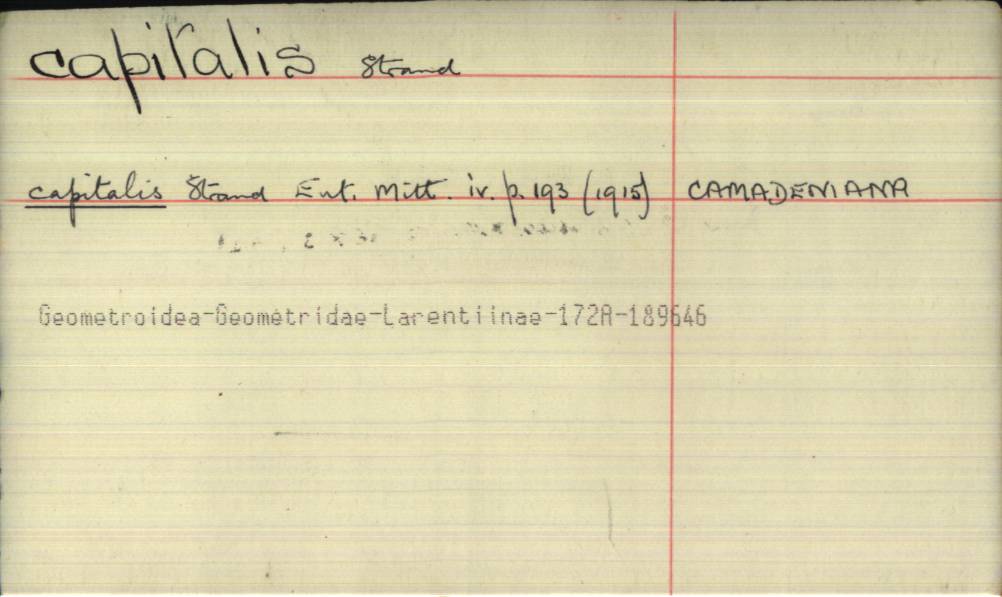 capitalis Strand
capitalis Strand Ent. Mitt. iv. p. 193 (1915) CAMADENIANA
Geometroidea-Geometridae-Larentiinae-172A-189646